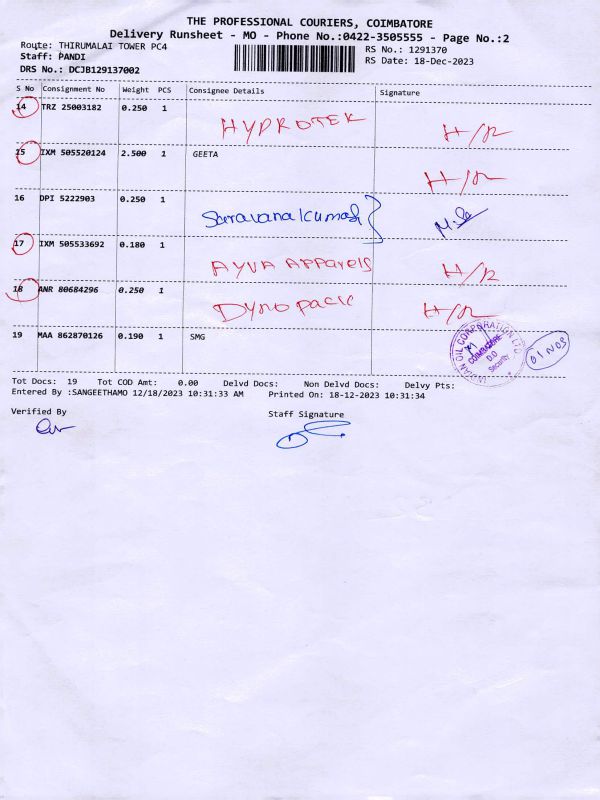 THE PROFESSIONAL COURIERS, COIMBATORE
Delivery Runsheet - MO - Phone No.:0422-3505555 - Page No.:2
Route: THIRUMALAI TOWER PC4 RS No.: 1291370
Staff: PANDI RS Date: 18-Dec-2023
DRS No.: DCJB129137002
S No Consignment No Weight PCS Consignee Details Signature
14 TRZ 25003182 0.250 1
HYDROTEK H/R
15 IXM 505520124 2.500 1 GEETA
H/R
16 DPI 5222903 0.250 1
Saravanakumar
17 IXM 505533692 0.180 1
AYVA APPARELS H/R
18 ANR 80684296 0.250 1
DYNO PACK H/R
19 MAA 862870126 0.190 1 SMG
INDIAN OIL CORPORATION LTD
COIMBATORE
D.O
Security
01 NOS
Tot Docs: 19 Tot COD Amt: 0.00 Delvd Docs: Non Delvd Docs: Delvy Pts:
Entered By :SANGEETHAMO 12/18/2023 10:31:33 AM Printed On: 18-12-2023 10:31:34
Verified By Staff Signature